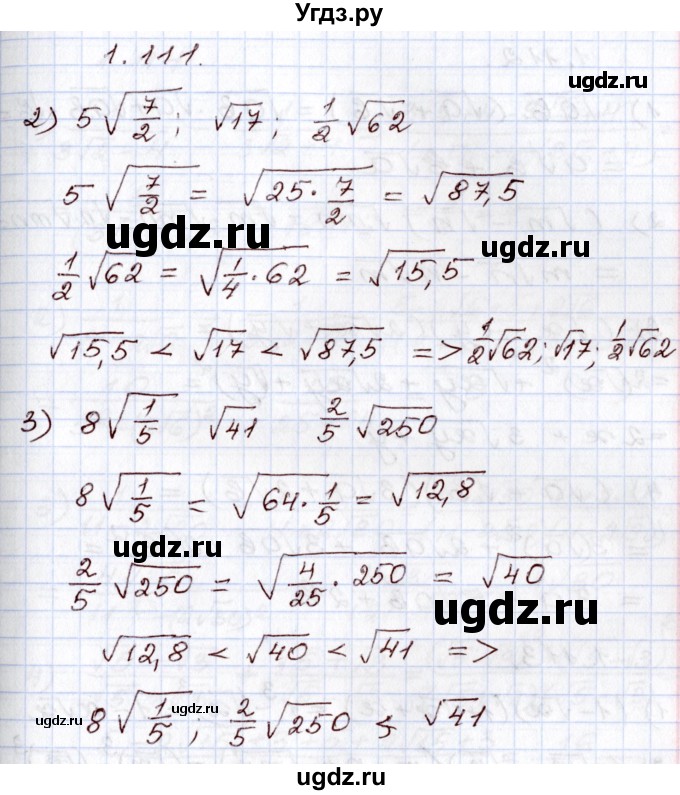 Угдз.ру
1.111.
2) 5√(7/2); √17; 1/2 √62
5 √(7/2) = √(25·7/2) = √87,5
ugdz.ru ugdz.ru
1/2 √62 = √(1/4·62) = √15,5
√15,5 < √17 < √87,5 => 1/2 √62; √17; 1/2 √62
3) 8√(1/5) √41 2/5 √250
8√(1/5) = √(64·1/5) = √12,8
ugdz.ru
2/5 √250 = √(4/25·250) = √40
ugdz.ru
√12,8 < √40 < √41 =>
ugdz.ru ugdz.ru ugdz.ru
8√(1/5); 2/5 √250; √41
ugdz.ru